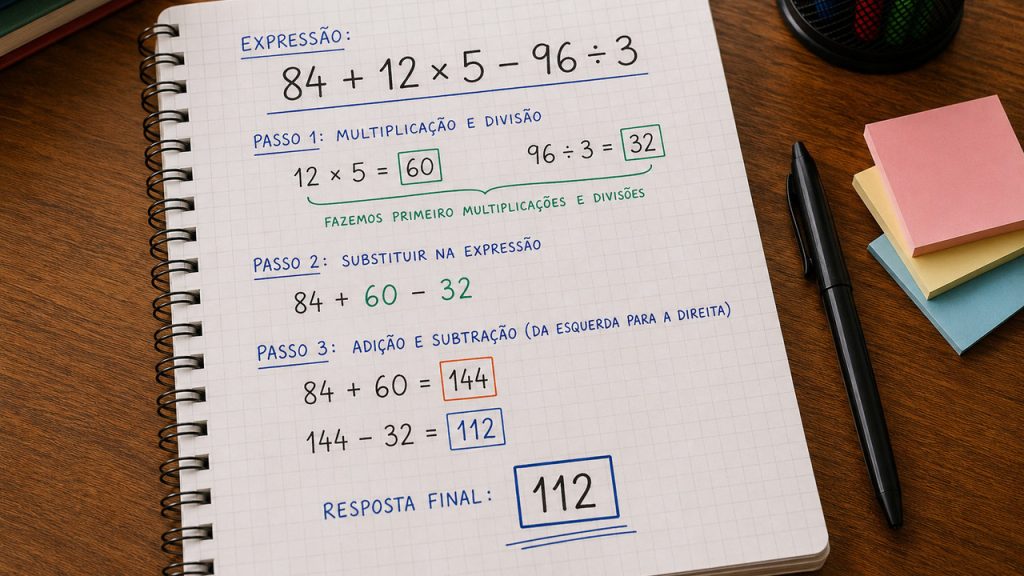 EXPRESSÃO:
84 + 12 × 5 − 96 ÷ 3
PASSO 1: MULTIPLICAÇÃO E DIVISÃO
12 × 5 = 60 96 ÷ 3 = 32
FAZEMOS PRIMEIRO MULTIPLICAÇÕES E DIVISÕES
PASSO 2: SUBSTITUIR NA EXPRESSÃO
84 + 60 − 32
PASSO 3: ADIÇÃO E SUBTRAÇÃO (DA ESQUERDA PARA A DIREITA)
84 + 60 = 144
144 − 32 = 112
RESPOSTA FINAL: 112